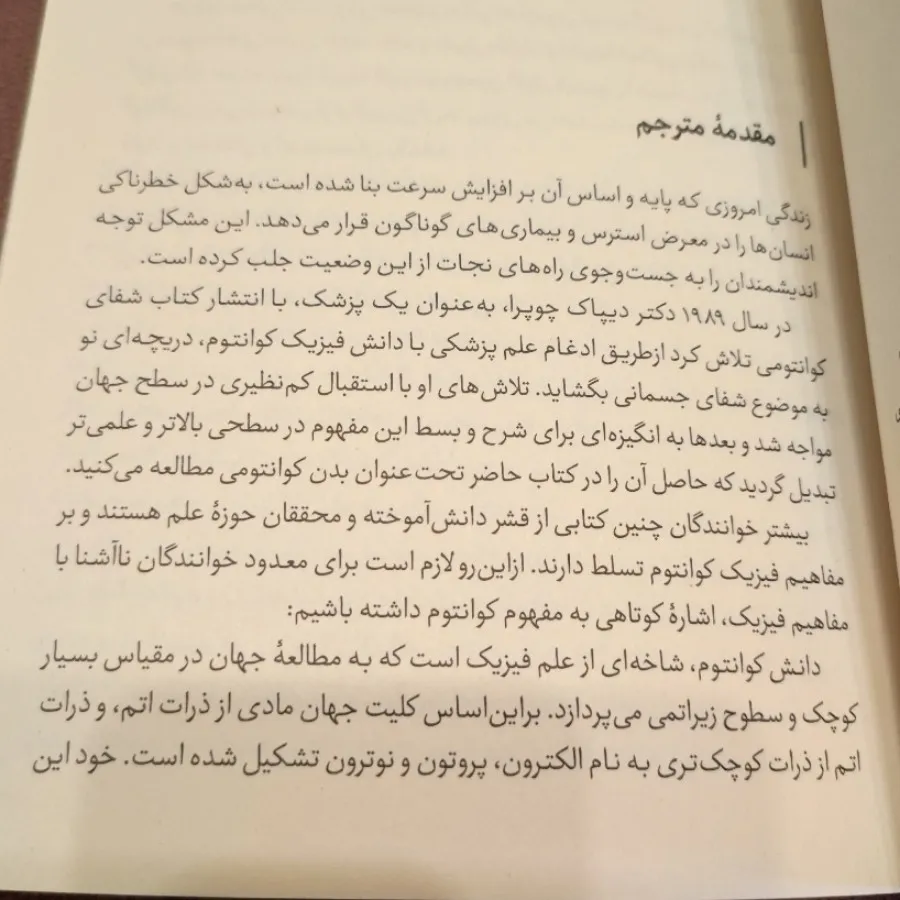 مقدمهٔ مترجم
زندگی امروزی که پایه و اساس آن بر افزایش سرعت بنا شده است، به‌شکل خطرناکی
انسان‌ها را در معرض استرس و بیماری‌های گوناگون قرار می‌دهد. این مشکل توجه
اندیشمندان را به جست‌وجوی راه‌های نجات از این وضعیت جلب کرده است.
در سال ۱۹۸۹ دکتر دیپاک چوپرا، به‌عنوان یک پزشک، با انتشار کتاب شفای
کوانتومی تلاش کرد ازطریق ادغام علم پزشکی با دانش فیزیک کوانتوم، دریچه‌ای نو
به موضوع شفای جسمانی بگشاید. تلاش‌های او با استقبال کم‌نظیری در سطح جهان
مواجه شد و بعدها به انگیزه‌ای برای شرح و بسط این مفهوم در سطحی بالاتر و علمی‌تر
تبدیل گردید که حاصل آن را در کتاب حاضر تحت‌عنوان بدن کوانتومی مطالعه می‌کنید.
بیشتر خوانندگان چنین کتابی از قشر دانش‌آموخته و محققان حوزهٔ علم هستند و بر
مفاهیم فیزیک کوانتوم تسلط دارند. ازاین‌رو لازم است برای معدود خوانندگان ناآشنا با
مفاهیم فیزیک، اشارهٔ کوتاهی به مفهوم کوانتوم داشته باشیم:
دانش کوانتوم، شاخه‌ای از علم فیزیک است که به مطالعهٔ جهان در مقیاس بسیار
کوچک و سطوح زیراتمی می‌پردازد. براین‌اساس کلیت جهان مادی از ذرات اتم، و ذرات
اتم از ذرات کوچک‌تری به نام الکترون، پروتون و نوترون تشکیل شده است. خود این